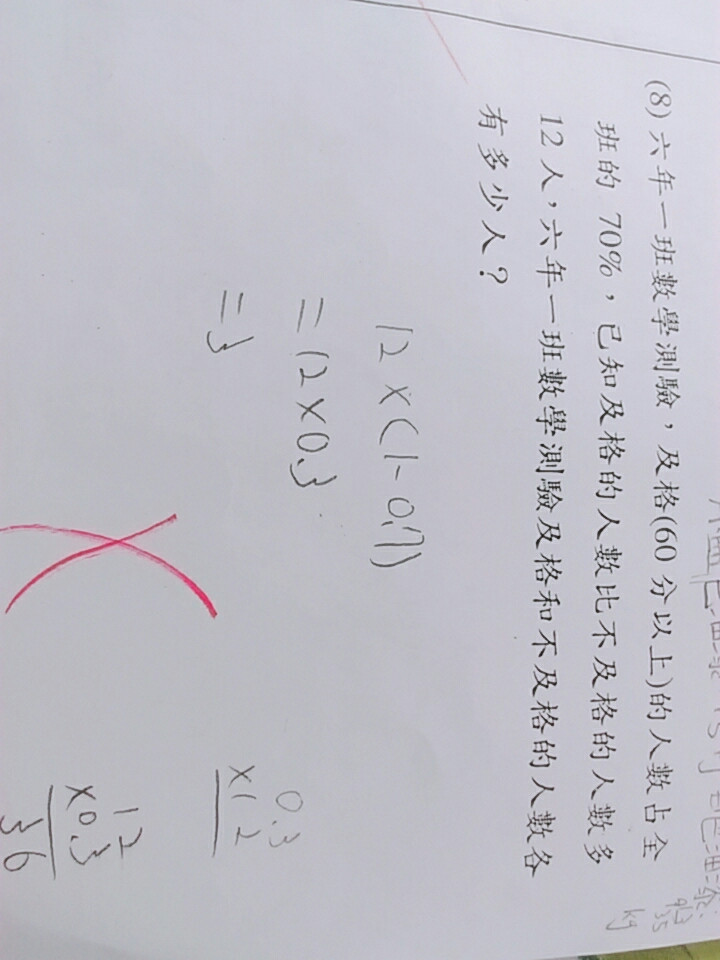 (8) 六年一班數學測驗，及格(60 分以上)的人數占全
班的 70%，已知及格的人數比不及格的人數多
12 人，六年一班數學測驗及格和不及格的人數各
有多少人？
12×(1-0.7)
=12×0.3
=3
0.3
×12
12
×0.3
36
kg